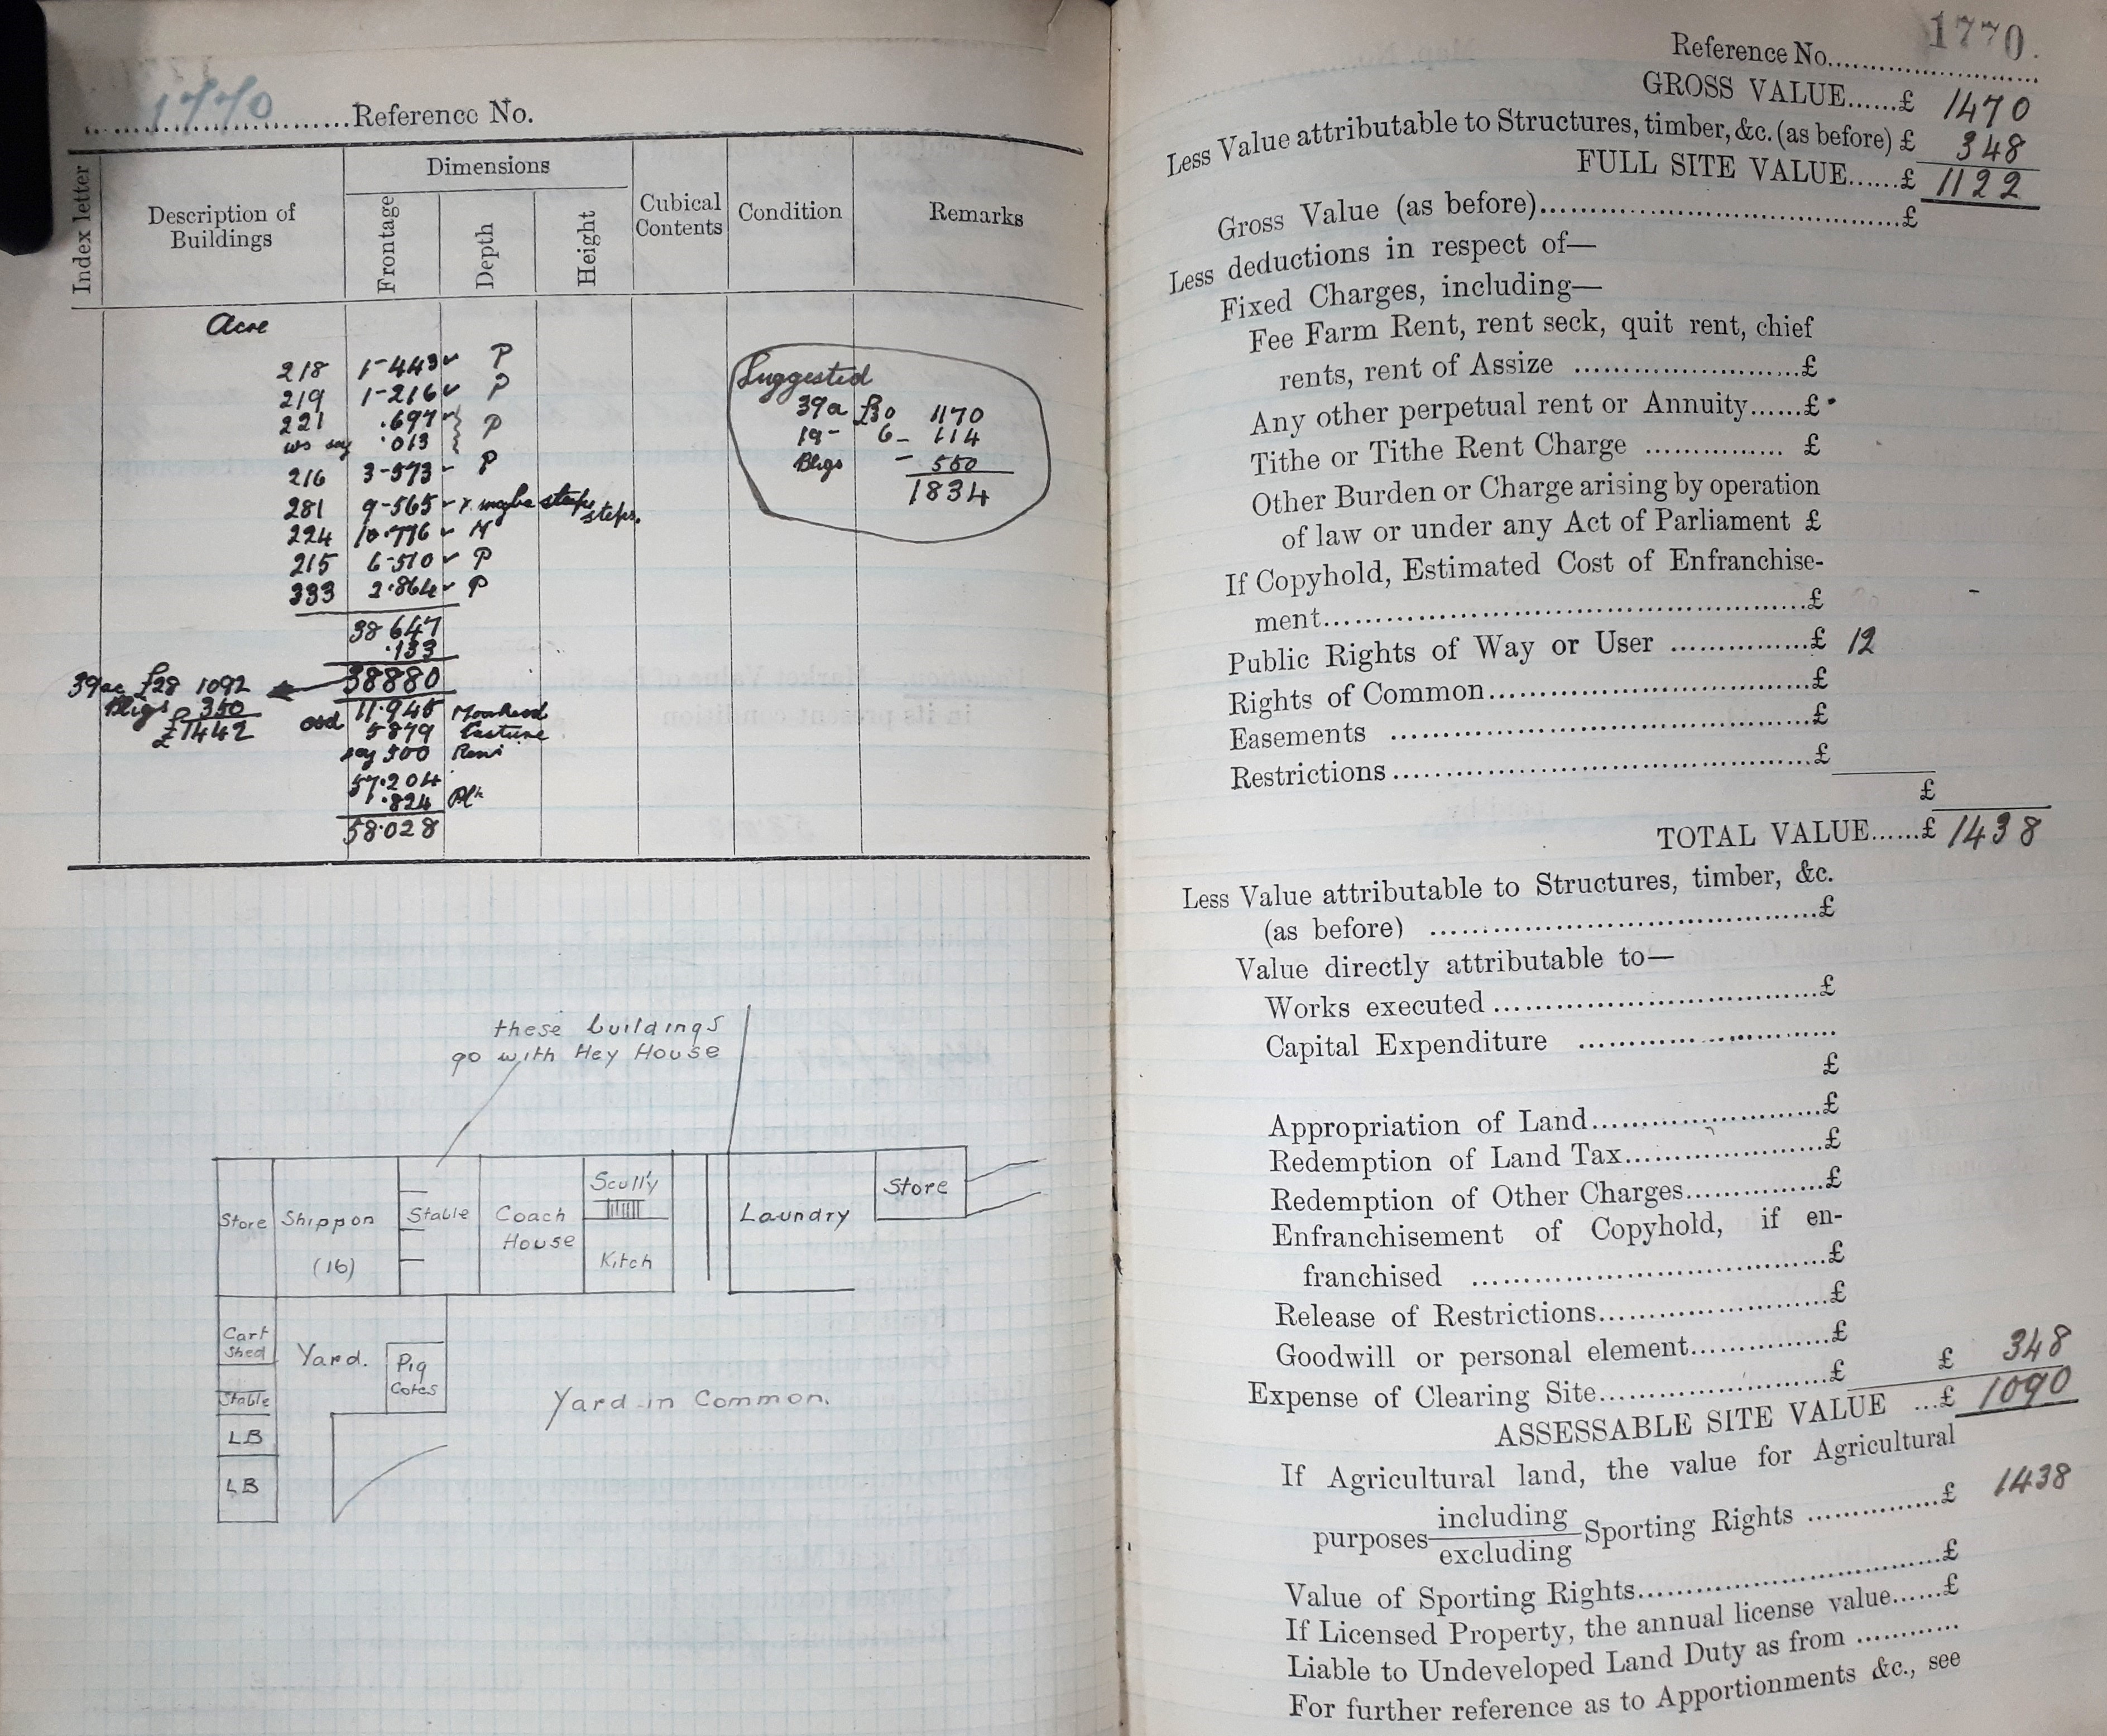 1770
Reference No.
Index letter
Description of Buildings
Dimensions
Frontage
Depth
Height
Cubical Contents
Condition
Remarks
Acre
218 1-443 P
219 1-216 P
221 .697
ws say .013 P
216 3-573 P
281 9-565 maybe steps steps.
224 10.776 M
215 6-510 P
333 2.864 P
38 647
.133
38880
39ac £28 1092
Bldgs 350
£1442
11.945
5879 Pasture
say 500
57.204
.824 Plⁿ
58.028
Suggested
39a £30 1170
19- 6- 114
Bldgs - 550
1834
these buildings
go with Hey House
Store
Shippon
(16)
Stable
Coach
House
Scull'y
Kitch
Laundry
Store
Cart
Shed
Stable
LB
LB
Yard.
Pig
Cotes
Yard in Common.
Reference No. 1770.
GROSS VALUE......£ 1470
Less Value attributable to Structures, timber, &c. (as before) £ 348
FULL SITE VALUE......£ 1122
Gross Value (as before)......£
Less deductions in respect of—
Fixed Charges, including—
Fee Farm Rent, rent seck, quit rent, chief
rents, rent of Assize ......£
Any other perpetual rent or Annuity......£
Tithe or Tithe Rent Charge ...... £
Other Burden or Charge arising by operation
of law or under any Act of Parliament £
If Copyhold, Estimated Cost of Enfranchise-
ment......£
Public Rights of Way or User ......£ 12
Rights of Common......£
Easements ......£
Restrictions......£
£
TOTAL VALUE......£ 1438
Less Value attributable to Structures, timber, &c.
(as before) ......£
Value directly attributable to—
Works executed ......£
Capital Expenditure ......
£
Appropriation of Land......£
Redemption of Land Tax......£
Redemption of Other Charges......£
Enfranchisement of Copyhold, if en-
franchised ......£
Release of Restrictions......£
Goodwill or personal element......£
Expense of Clearing Site......£ £ 348
ASSESSABLE SITE VALUE ...£ 1090
If Agricultural land, the value for Agricultural
purposes including excluding Sporting Rights ......£ 1438
Value of Sporting Rights......£
If Licensed Property, the annual license value......£
Liable to Undeveloped Land Duty as from ......
For further reference as to Apportionments &c., see